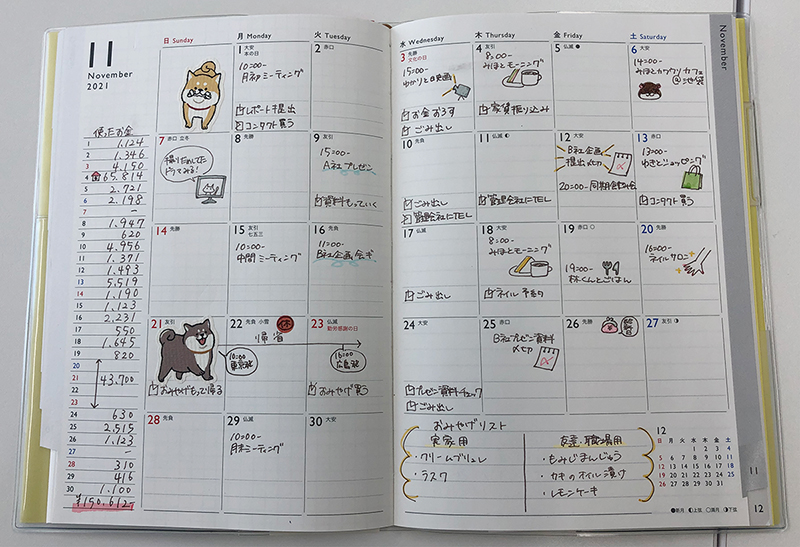 11
November
2021
使ったお金
1 1.124
2 1.346
3 4.150
4 65.814
5 2.721
6 2.198
7 ー
8 1.947
9 620
10 4.956
11 1.371
12 1.493
13 5.519
14 1.190
15 1.123
16 2.231
17 550
18 1.645
19 820
20
21 43.700
22
23
24 630
25 2.515
26 1.123
27 ー
28 310
29 416
30 1.100
¥150.612-
日 Sunday
月 Monday
火 Tuesday
水 Wednesday
木 Thursday
金 Friday
土 Saturday
November
1 大安
本の日
10:00-
月初ミーティング
レポート提出
コンタクト買う
2 赤口
3 先勝
文化の日
15:00-
ゆかりと映画
お金おろす
ごみ出し
4 友引
8:00-
みほとモーニング
家賃振り込み
5 仏滅
6 大安
14:00-
みほとカワウソカフェ
@池袋
7 赤口 立冬
撮りだめしてた
ドラマみる!
8 先勝
9 友引
15:00-
A社プレゼン
資料もっていく
10 先負
ごみ出し
管理会社にTEL
11 仏滅
管理会社にTEL
12 大安
B社企画
提出〆切
20:00-同期会
13 赤口
13:00-
ゆきとショッピング
コンタクト買う
14 先勝
15 友引
七五三
10:00-
中間ミーティング
16 先負
11:00-
B社企画会議
17 仏滅
ごみ出し
18 大安
8:00-
みほとモーニング
ネイル予約
19 赤口
19:00-
林くんとごはん
20 先勝
16:00-
ネイルサロン
21 友引
おみやげもって帰る
22 先負 小雪
休
帰省
10:00
東京発
23 仏滅
勤労感謝の日
16:00
広島発
おみやげ買う
24 大安
プレゼン資料チェック
ごみ出し
25 赤口
B社プレゼン資料
〆切
26 先勝
給料日
27 友引
28 先負
29 仏滅
10:00-
月末ミーティング
30 大安
おみやげリスト
実家用
・クリームブリュレ
・ラスク
友達・職場用
・もみじまんじゅう
・カキのオイル漬け
・レモンケーキ
12
日 月 火 水 木 金 土
1 2 3 4
5 6 7 8 9 10 11
12 13 14 15 16 17 18
19 20 21 22 23 24 25
26 27 28 29 30 31
●新月 ◐上弦 ○満月 ◑下弦
11
12